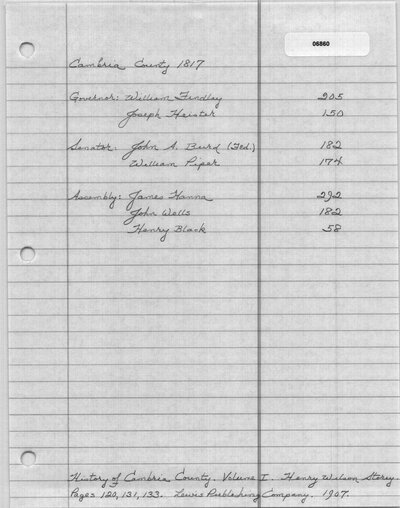 06860
Cambria County 1817
Governor: William Findlay 205
Joseph Heister 150
Senator: John A. Burd (Fed.) 182
William Piper 174
Assembly: James Hanna 292
John Wells 182
Henry Black 58
History of Cambria County. Volume I. Henry Wilson Storey.
Pages 120, 131, 133. Lewis Publishing Company. 1907.